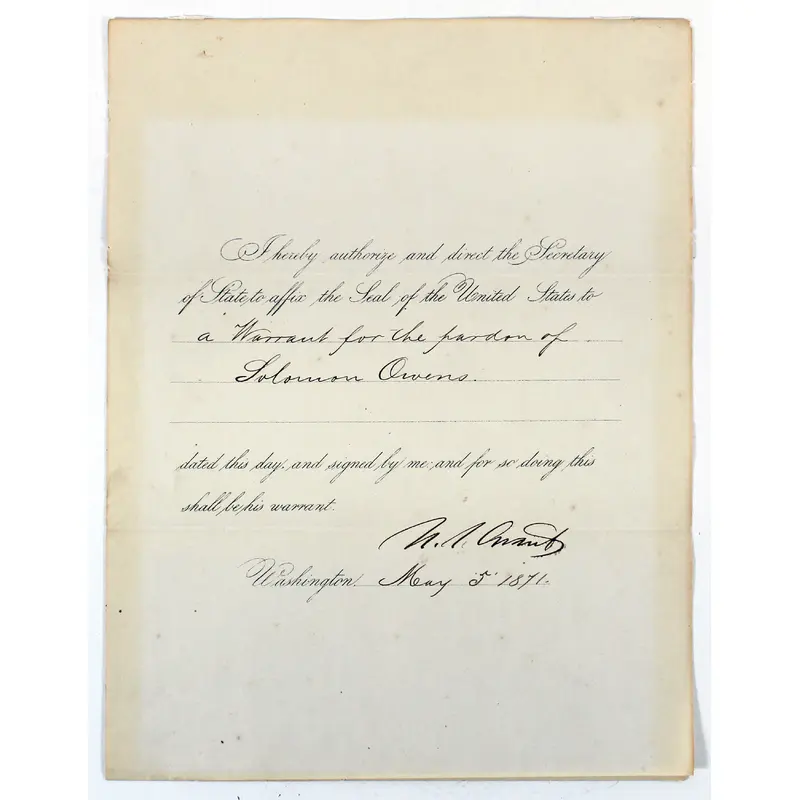 I hereby authorize and direct the Secretary
of State to affix the Seal of the United States to
a Warrant for the pardon of
Solomon Owens.
dated this day, and signed by me; and for so doing this
shall be his warrant.
U. S. Grant
Washington, May 5" 1871.